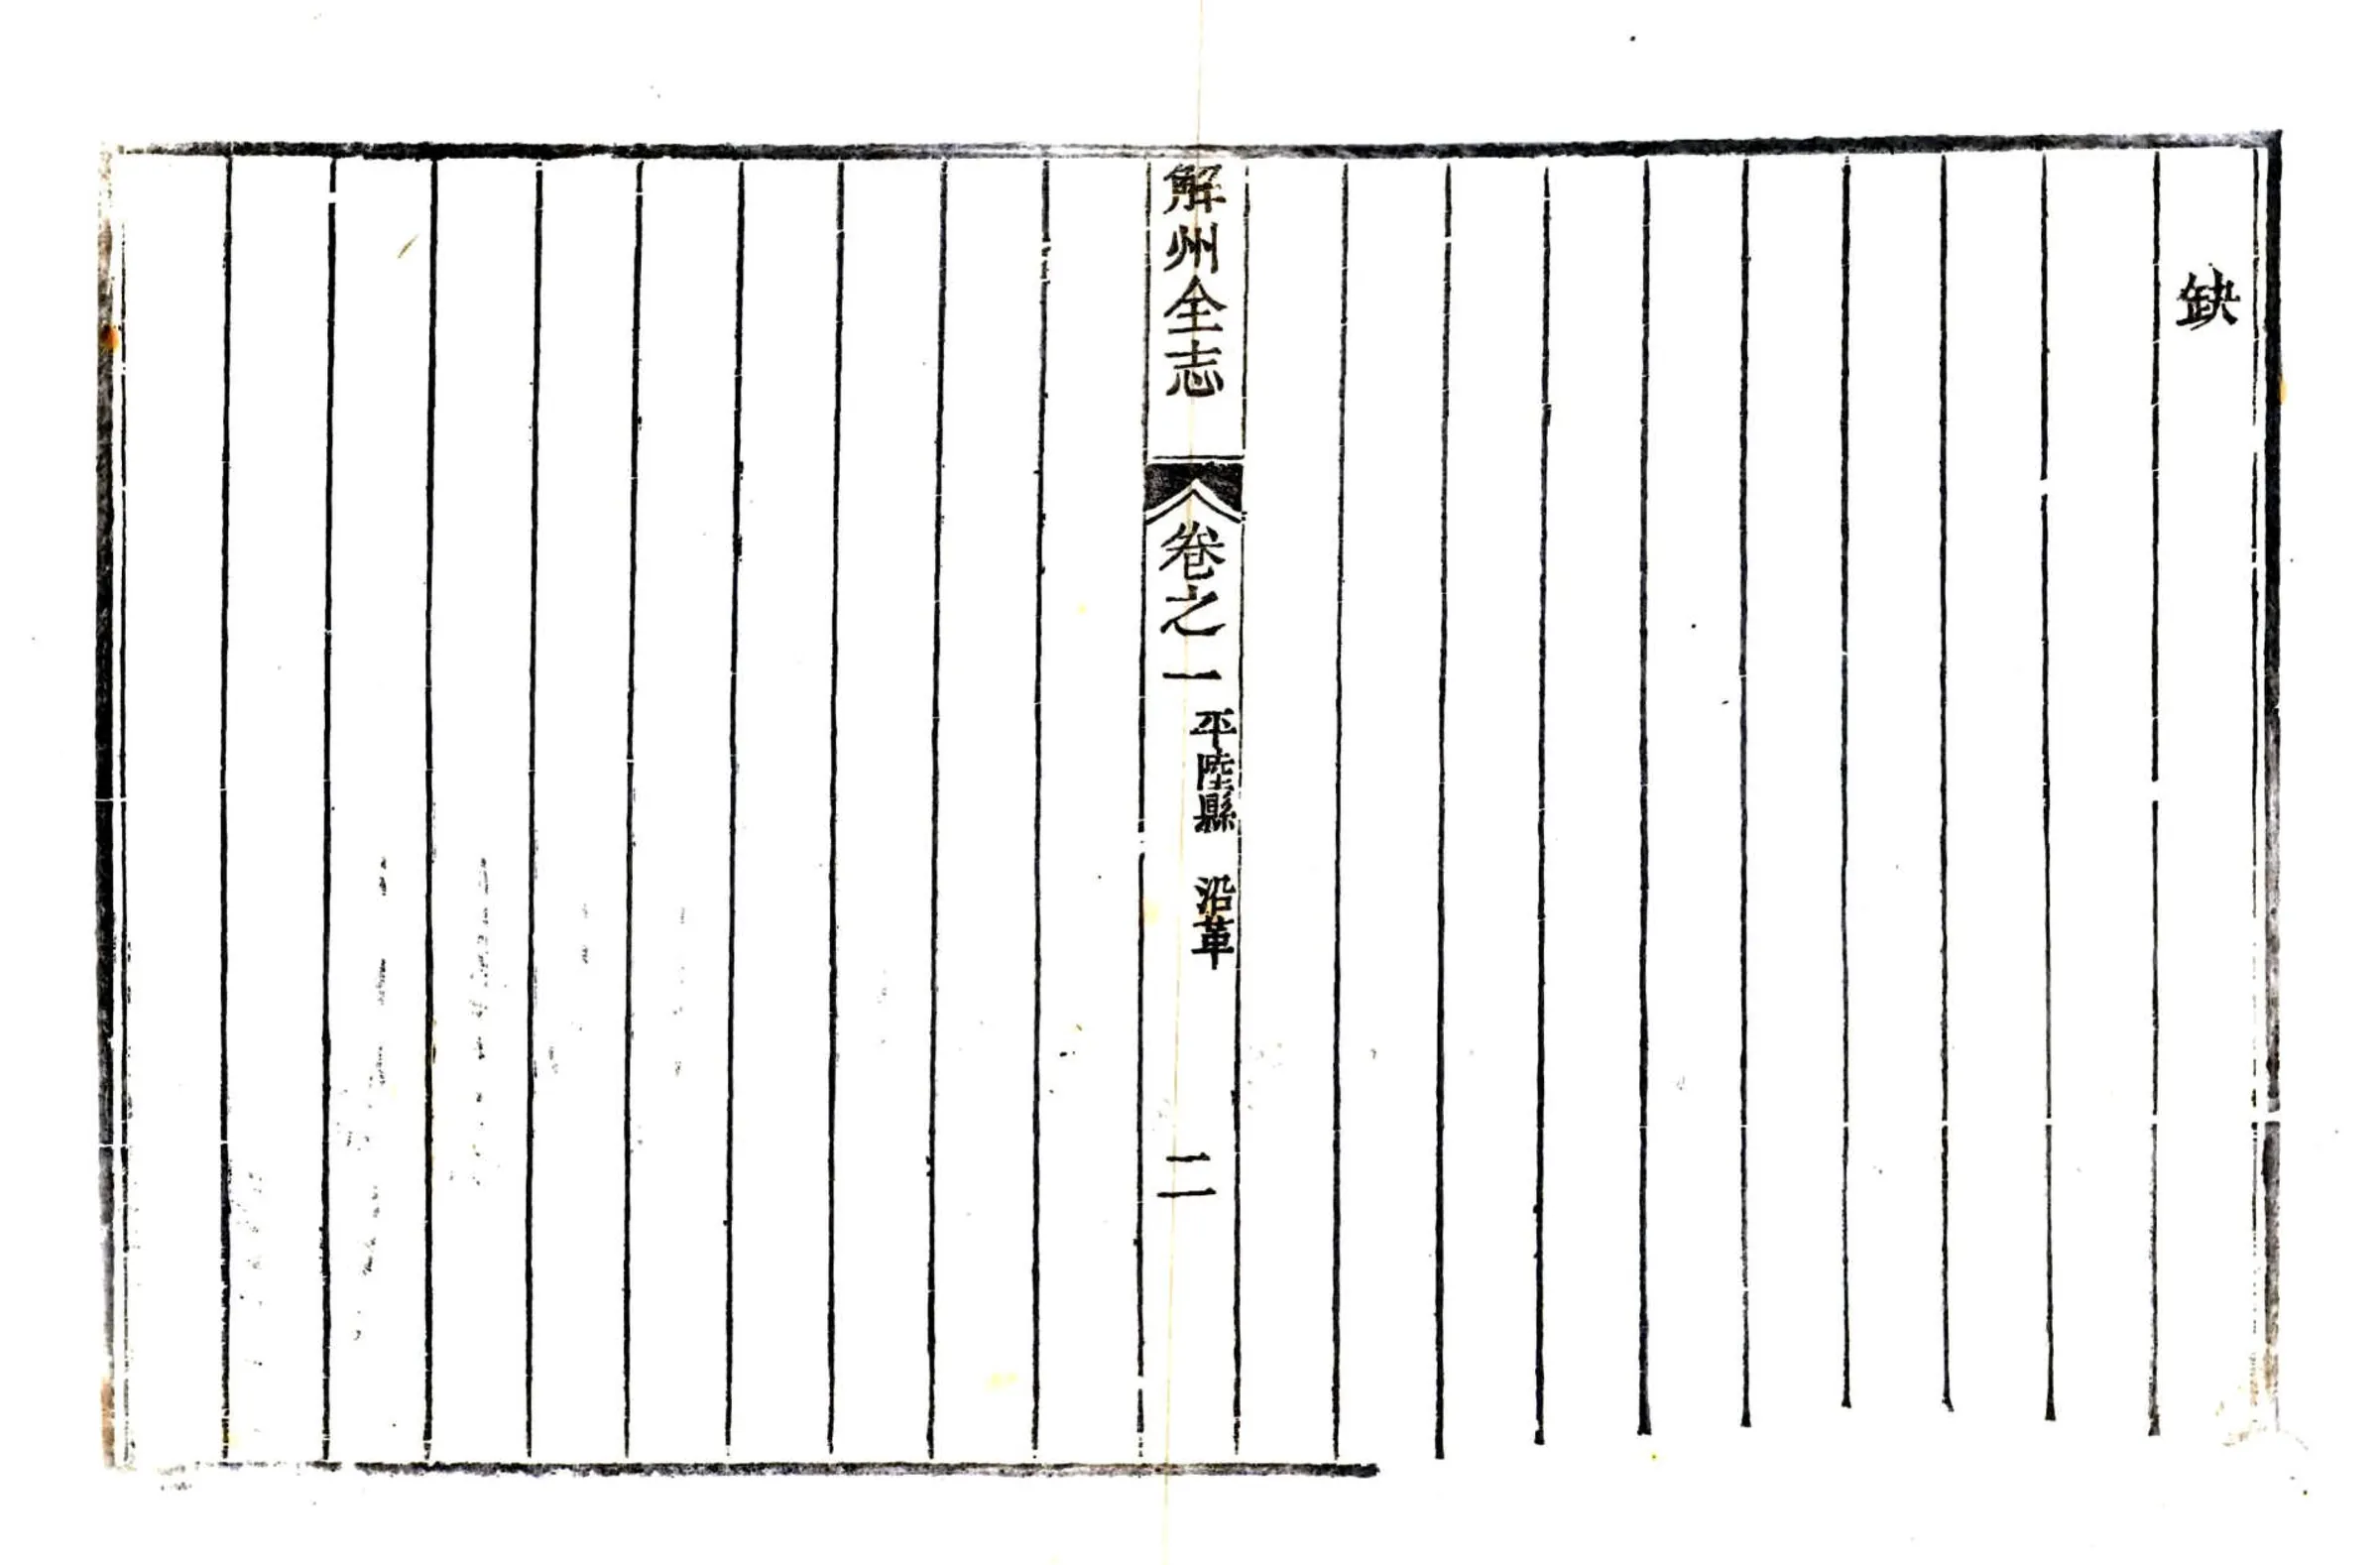 缺
解州全志
卷之一
平陸縣 沿革
二